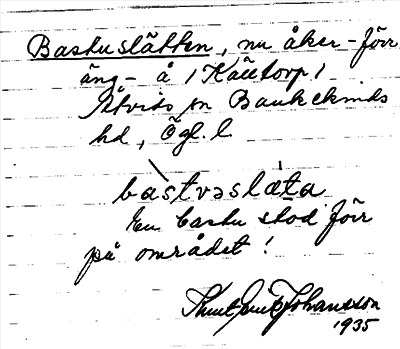 Bastuslätten, nu åker – förr
äng – å / Källtorp /
Åtvids sn Bankekinds
hd, Ögl. l.
bastvəslæta
En bastu stod förr
på området!
Knut Erik Johansson
1935